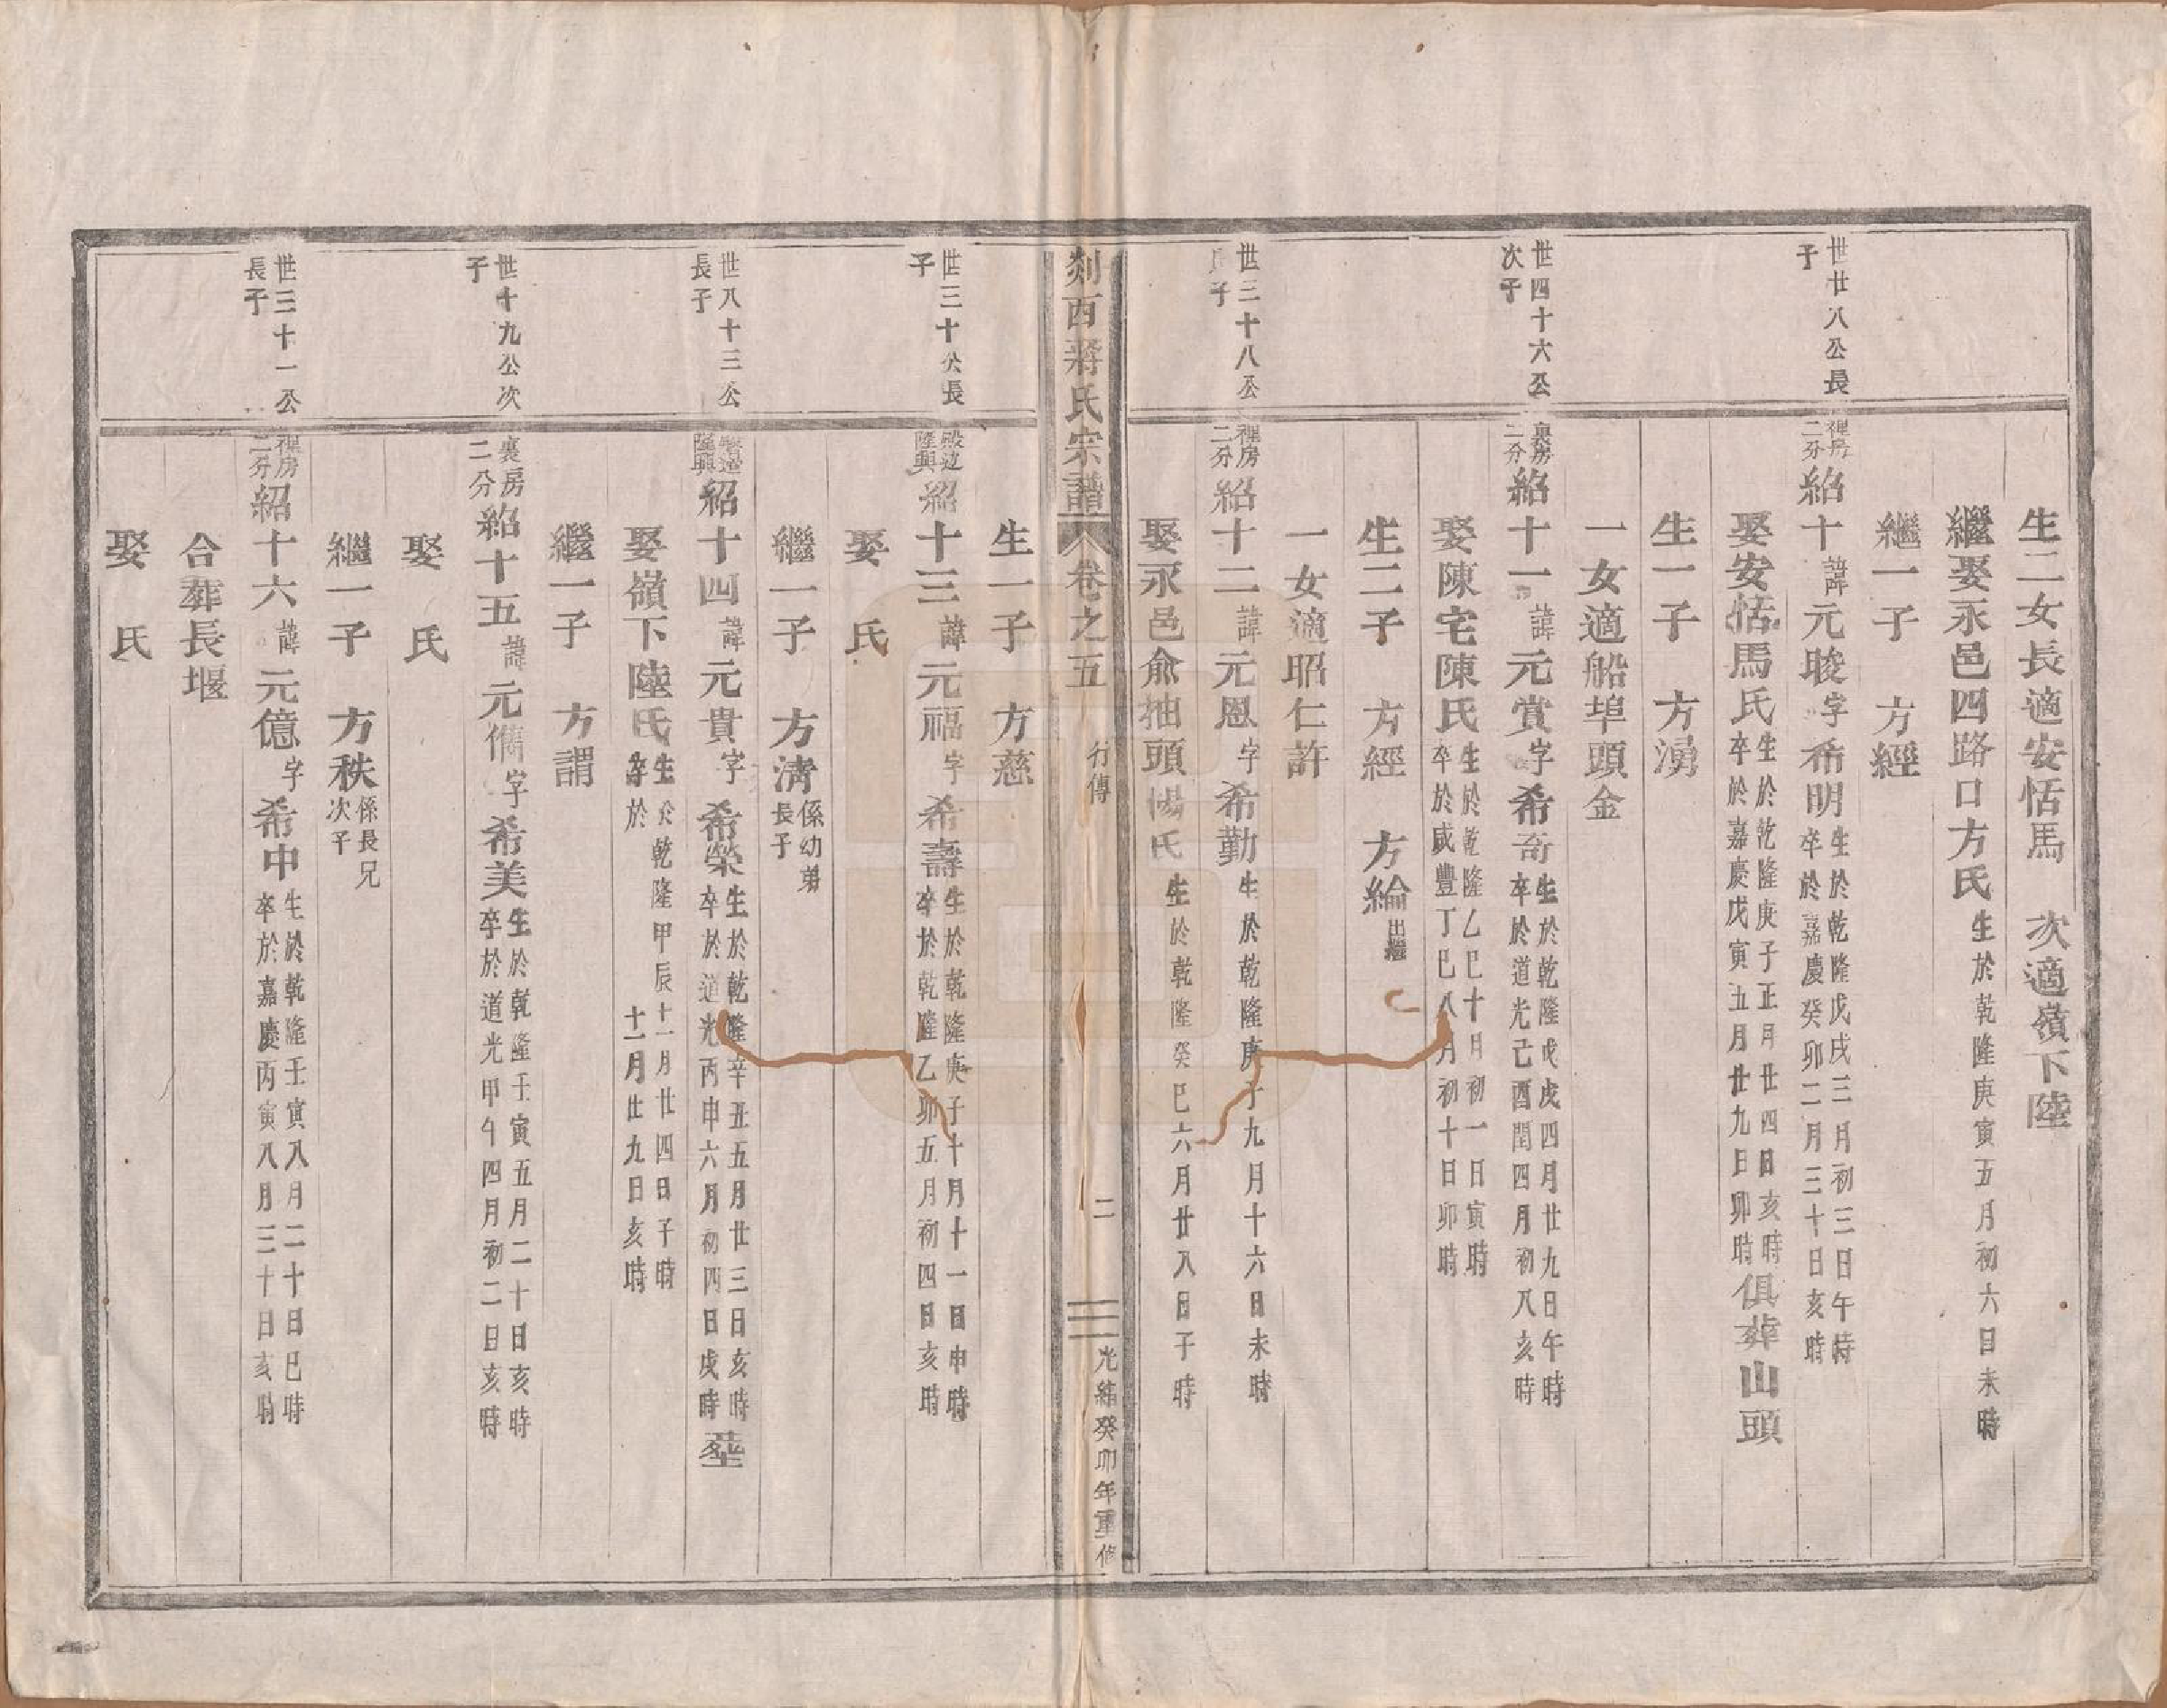 生二女長適安恬馬　次適嶺下陸
繼娶永邑四路口方氏生於乾隆庚寅五月初六日未時
繼一子　方經
世廿八公長子
裡房二分紹十諱元畯字希明生於乾隆戊戌三月初三日午時
卒於嘉慶癸卯二月三十日亥時
娶安恬馬氏生於乾隆庚子正月廿四日亥時
卒於嘉慶戊寅五月廿九日卯時俱葬山頭
生一子　方湧
一女適船埠頭金
世四十六公次子
裏房二分紹十一諱元賞字希奇生於乾隆戊戌四月廿九日午時
卒於道光己酉閏四月初八亥時
娶陳宅陳氏生於乾隆乙巳十月初一日寅時
卒於咸豐丁巳八月初十日卯時
生二子　方經　方綸出繼
一女適昭仁許
世三十八公子
裡房二分紹十二諱元恩字希勤生於乾隆庚子九月十六日未時
娶永邑俞抽頭楊氏生於乾隆癸巳六月廿八日子時
剡西蔣氏宗譜　卷之五　行傳　二　光緒癸卯年重修
生一子　方慈
世三十公長子
隆興紹十三諱元福字希壽生於乾隆庚子十月十一日申時
卒於乾隆乙卯五月初四日亥時
娶　氏
繼一子　方清係幼弟長子
世八十三公長子
隆興紹十四諱元貴字希榮生於乾隆辛丑五月廿三日亥時
卒於道光丙申六月初四日戌時葬
娶嶺下陸氏生於乾隆甲辰十一月廿四日子時
卒於　十一月廿九日亥時
繼一子　方謂
世十九公次子
裏房二分紹十五諱元儁字希美生於乾隆壬寅五月二十日亥時
卒於道光甲午四月初二日亥時
娶　氏
繼一子　方秩係長兄次子
世三十一公長子
裡房二分紹十六諱元億字希中生於乾隆壬寅八月二十日巳時
卒於嘉慶丙寅八月三十日亥時
合葬長堰
娶　氏